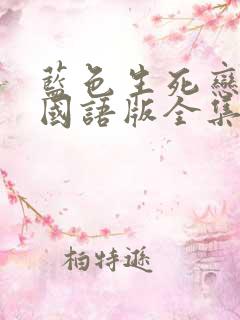 藍色生死戀
國語版全集
柏特遜